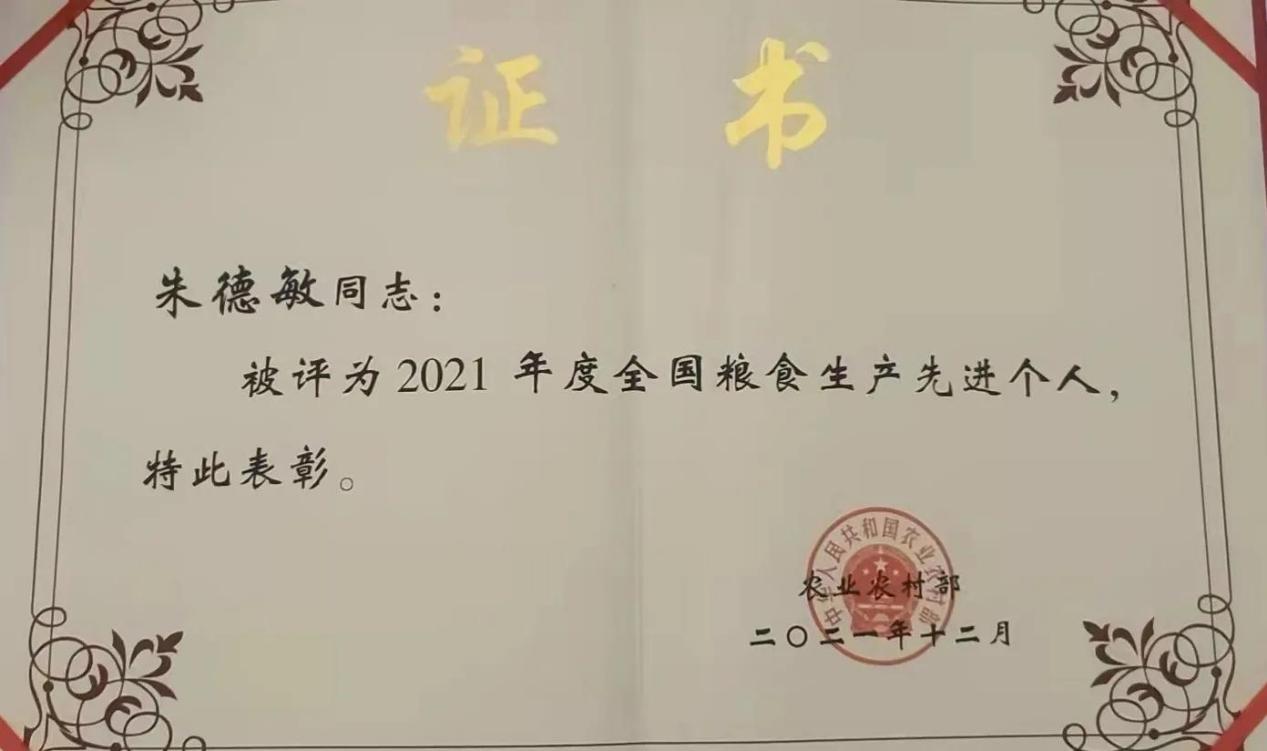 证书
朱德敏同志：
被评为2021年度全国粮食生产先进个人，
特此表彰。
中华人民共和国农业农村部
农业农村部
二〇二一年十二月